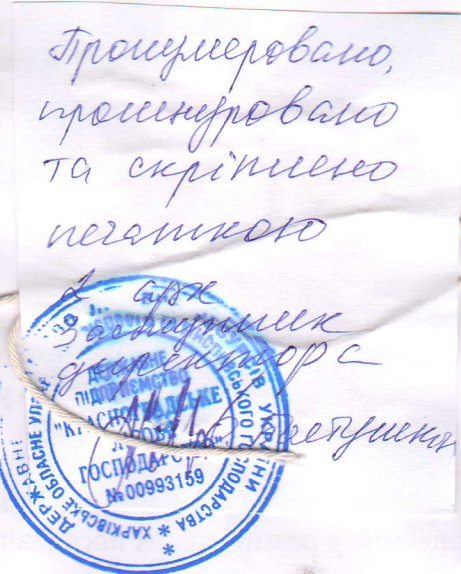 Пронумеровано,
прошнуровано
та скріплено
печаткою
2 арк
Заступник
директора
ДЕРЖАВНЕ
ПІДПРИЄМСТВО
"КРАСНОГРАДСЬКЕ
ГОСПОДАРСТВО"
№ 00993159
ХАРКІВСЬКЕ ОБЛАСНЕ УПРАВЛІННЯ